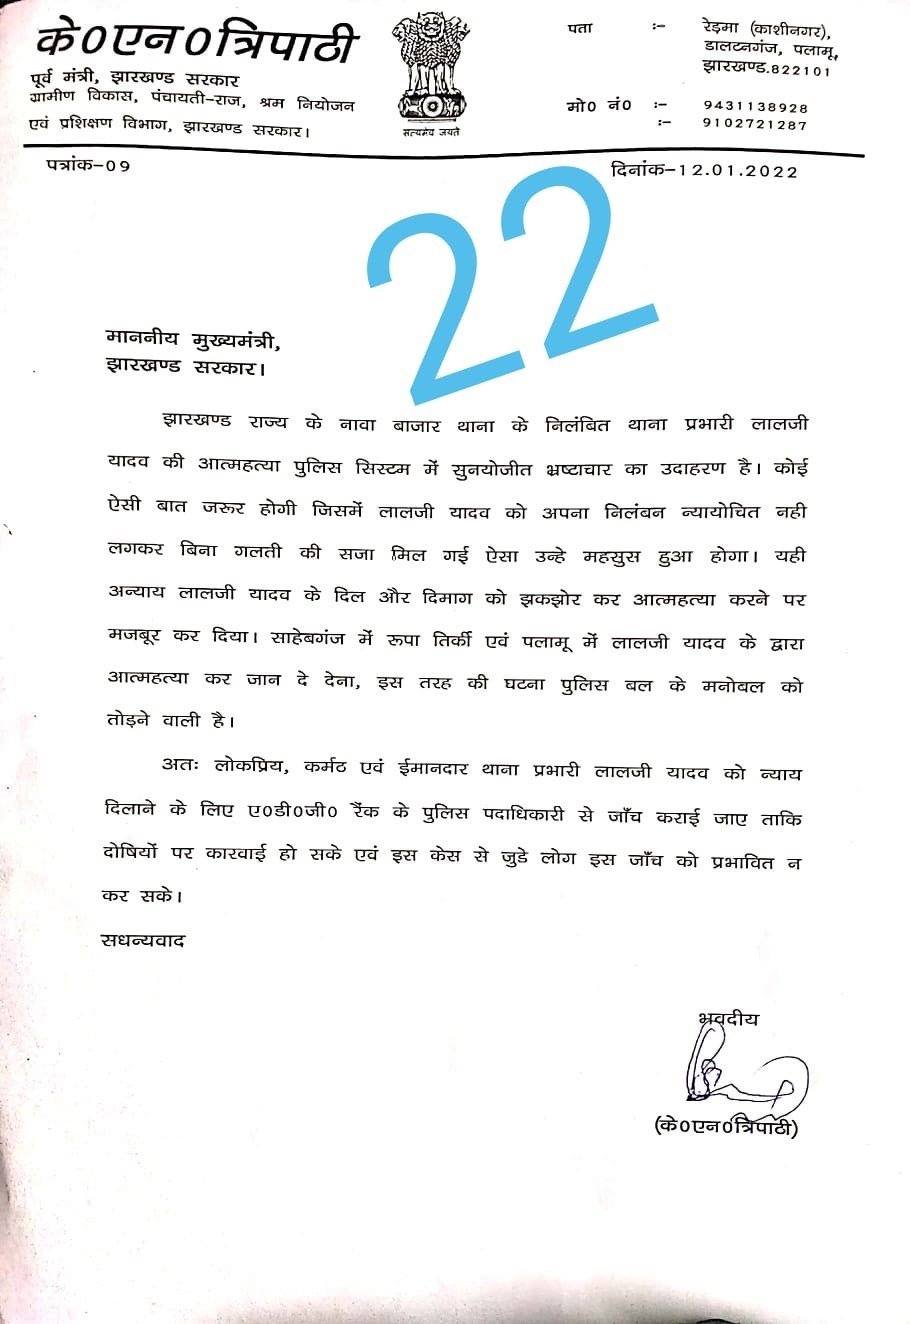 के0एन0त्रिपाठी
पूर्व मंत्री, झारखण्ड सरकार
ग्रामीण विकास, पंचायती-राज, श्रम नियोजन
एवं प्रशिक्षण विभाग, झारखण्ड सरकार।
सत्यमेव जयते
पता :- रेड़मा (काशीनगर),
डालटनगंज, पलामू,
झारखण्ड.822101
मो0 नं0 :- 9431138928
:- 9102721287
पत्रांक-09
दिनांक-12.01.2022
22
माननीय मुख्यमंत्री,
झारखण्ड सरकार।
झारखण्ड राज्य के नावा बाजार थाना के निलंबित थाना प्रभारी लालजी
यादव की आत्महत्या पुलिस सिस्टम में सुनयोजीत भ्रष्टाचार का उदाहरण है। कोई
ऐसी बात जरूर होगी जिसमें लालजी यादव को अपना निलंबन न्यायोचित नही
लगकर बिना गलती की सजा मिल गई ऐसा उन्हे महसुस हुआ होगा। यही
अन्याय लालजी यादव के दिल और दिमाग को झकझोर कर आत्महत्या करने पर
मजबूर कर दिया। साहेबगंज में रूपा तिर्की एवं पलामू में लालजी यादव के द्वारा
आत्महत्या कर जान दे देना, इस तरह की घटना पुलिस बल के मनोबल को
तोड़ने वाली है।
अतः लोकप्रिय, कर्मठ एवं ईमानदार थाना प्रभारी लालजी यादव को न्याय
दिलाने के लिए ए0डी0जी0 रैंक के पुलिस पदाधिकारी से जाँच कराई जाए ताकि
दोषियों पर कारवाई हो सके एवं इस केस से जुडे लोग इस जाँच को प्रभावित न
कर सके।
सधन्यवाद
भवदीय
(के0एन0त्रिपाठी)